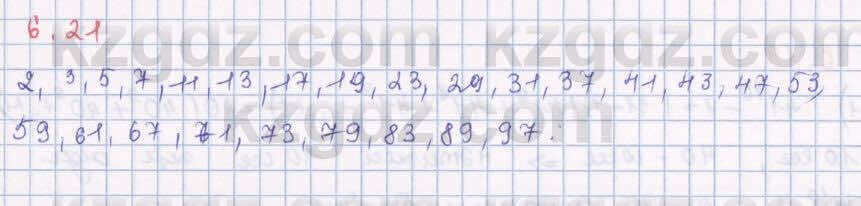 6.21
2, 3, 5, 7, 11, 13, 17, 19, 23, 29, 31, 37, 41, 43, 47, 53,
59, 61, 67, 71, 73, 79, 83, 89, 97.
kzgdz.com kzgdz.com